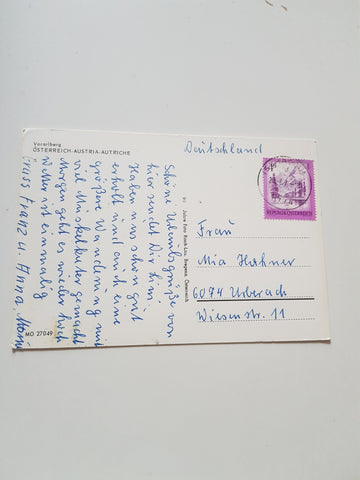 Vorarlberg
ÖSTERREICH-AUSTRIA-AUTRICHE
Schöne Urlaubsgrüße von
hier sendet Dir
Haben uns schon gut
erholt und auch eine
größere Wanderung mit
viel Muskelkater gemacht
Morgen geht es wieder hoch
Wetter ist einmalig
Franz u. Anna
MO 27049
Jahre Foto Risch-Lau, Bregenz, Österreich.
Deutschland
REPUBLIK ÖSTERREICH
Frau
Mia Hahner
6074 Urberach
Wiesenstr. 11